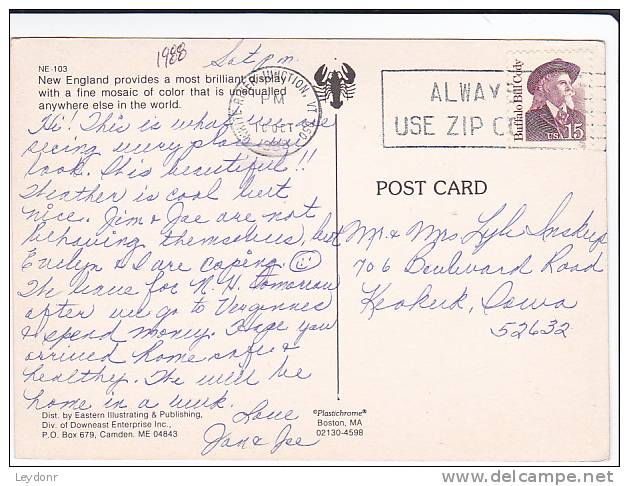 1988
Sat. p.m.
NE-103
New England provides a most brilliant display
with a fine mosaic of color that is unequalled
anywhere else in the world.
Hi! This is what we are
seeing every place we
look. It is beautiful!!
Weather is cool but
nice. Jim & Joe are not
behaving themselves, but
Evelyn & I are coping. ☺
We leave for N.H. tomorrow
after we go to Vergennes
& spend money. Hope you
arrived home safe &
healthy. We will be
home in a week.
Love
Jan & Joe
Dist. by Eastern Illustrating & Publishing,
Div. of Downeast Enterprise Inc.,
P.O. Box 679, Camden. ME 04843
JUNCTION, VT
PM
10 OCT
ALWAYS
USE ZIP CO
Buffalo Bill Cody
USA 15
POST CARD
Mr. & Mrs. Lyle Inskeep
706 Boulevard Road
Keokuk, Iowa
52632
"Plastichrome"®
Boston, MA
02130-4598
Leydonr
www.delcampe.net